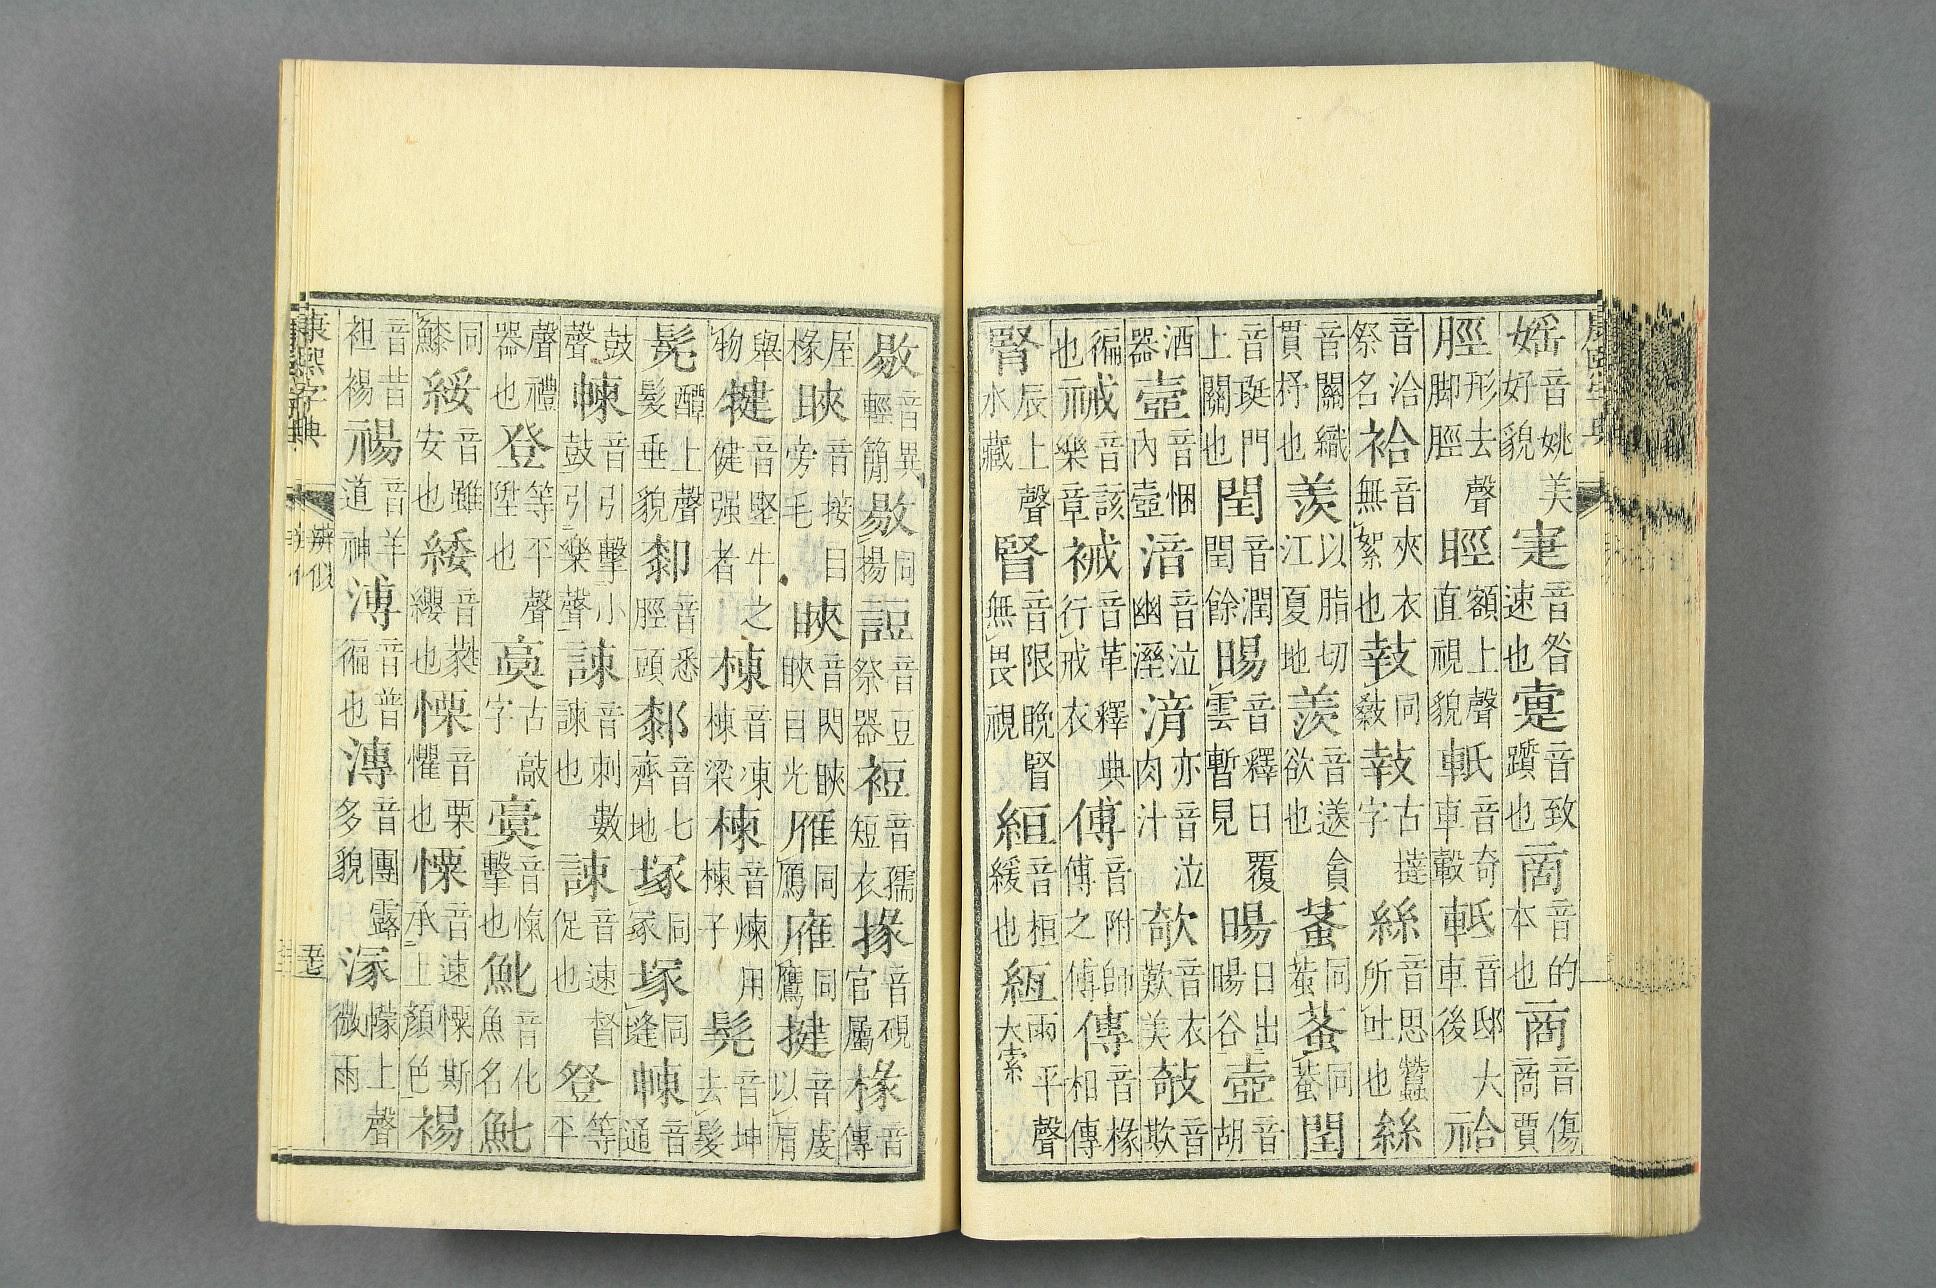 媱音姚美好貌疌音昝速也疐音致躓也啇音的本也商音傷啇賈
脛形去聲脚脛𥆑額上聲直視貌軝音奇車轂軧音邸大車後祫
音洽祭名袷音夾衣無絮也㪇同敹㪇古撻字絲音思蠶所吐也絲
音關織貫杼也羡以脂切江夏地羨音送貪欲也䖝同蚉蚤同蚤閏
音珽門上關也閏音潤閏餘暘音釋日覆雲暫見暘日出暘谷壺音胡
酒器壼音悃內壼湆音泣幽溼湇亦音泣肉汁欹音衣歎美攲音欺
徧也祴音該樂章裓音革釋典行戒衣傅音附師傅之傅傳音椽相傳
腎辰上聲水藏䀼音限晚䀼無畏視絙音桓緩也縆雨平聲大索
敡音異輕簡敭同揚䛠音豆祭器裋音孺短衣掾音硯官屬椽音傳
屋椽䀹音接目旁毛睒音閃睒目光雁同鴈䧹同鷹揵音虔以肩
舉物犍音堅牛之健强者棟音凍棟梁楝音煉用楝子髡音坤去髮
髧醰上聲髮垂貌厀音悉脛頭郪音七齊地塚同冢塜同縫㯥音通
鼓聲朄音引擊小鼓引樂聲諫音刺數諫也諫音速督促也登等平
聲禮器也登等平聲陞也亯古敲字㝩音愾擊也魤音化魚名魮
同鰲綏音雖安也緌音蕤纓也慄音栗懼也愫音速愫斯承上顏色裼
音昔袒裼禓音羊道神溥音普徧也漙音團露多貌濛幪上聲微雨
康熙字典
辨似